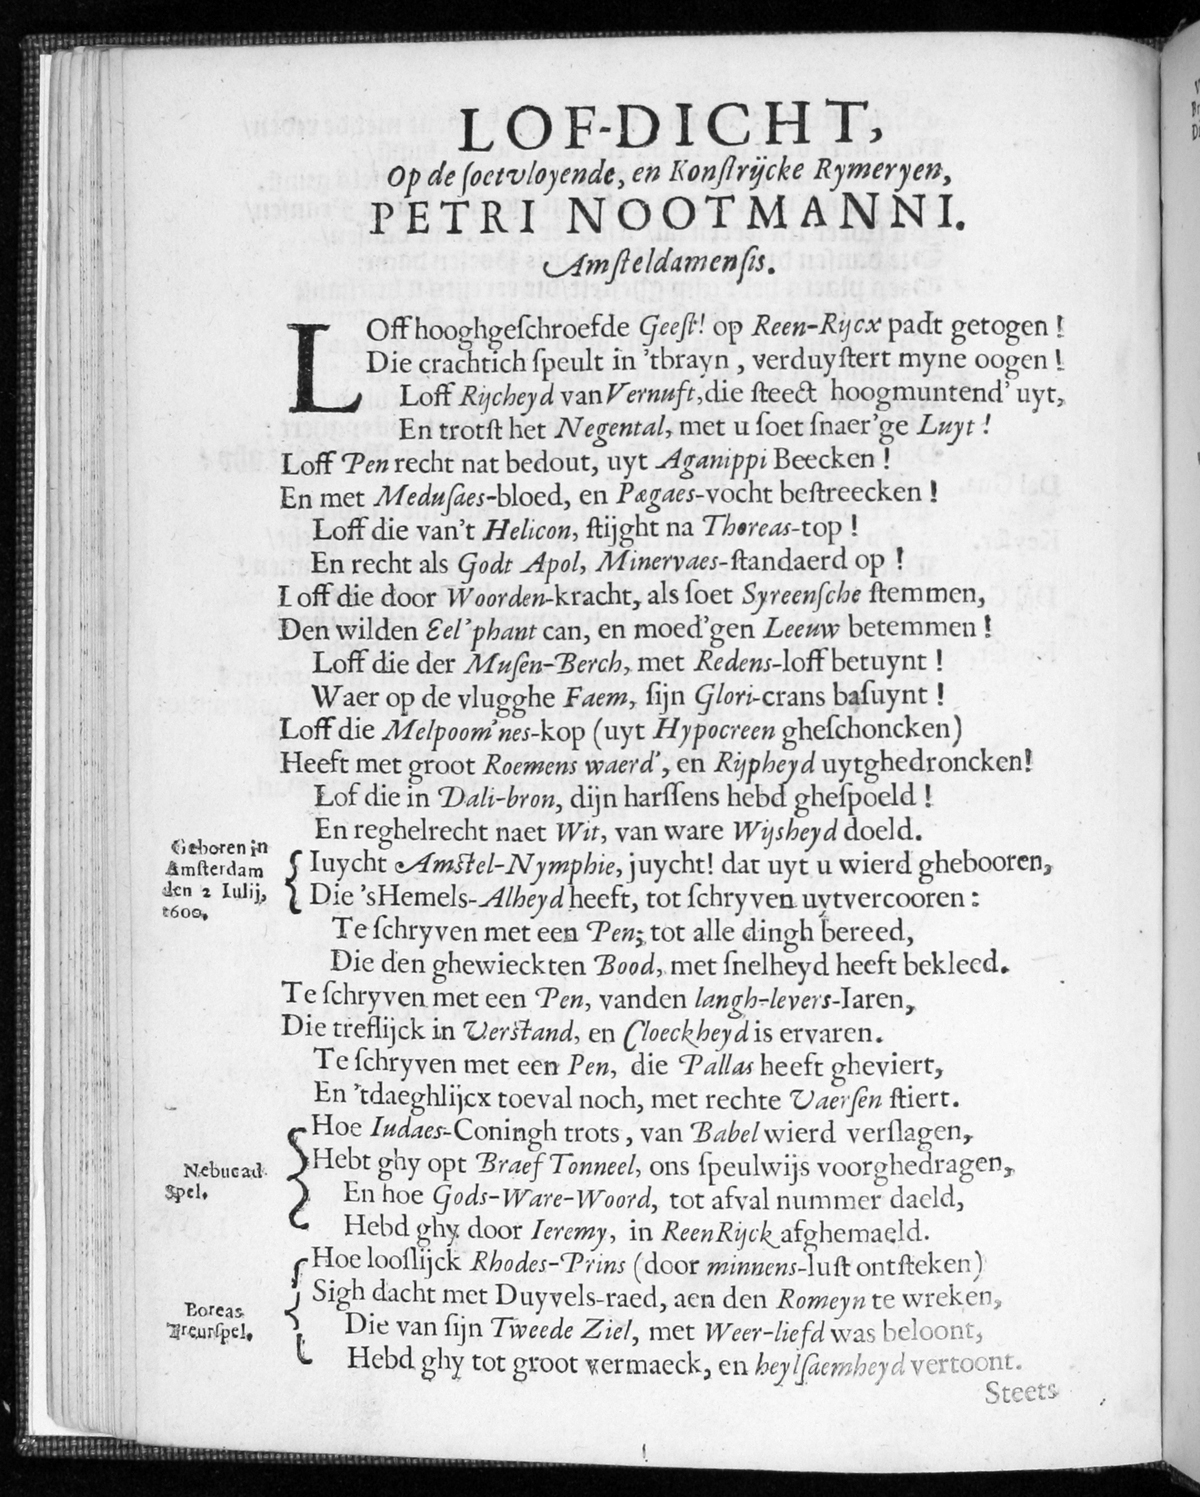 LOF-DICHT,
Op de ſoetvloyende, en Konſtrijcke Rymeryen,
PETRI NOOTMANNI.
Amſteldamenſis.
LOff hooghgeſchroefde Geeſt! op Reen-Rijcx padt getogen!
Die crachtich ſpeult in 'tbrayn, verduyſtert myne oogen!
Loff Rijcheyd van Vernuft, die ſteect hoogmuntend' uyt,
En trotſt het Negental, met u ſoet ſnaer'ge Luyt!
Loff Pen recht nat bedout, uyt Aganippi Beecken!
En met Meduſaes-bloed, en Pægaes-vocht beſtreecken!
Loff die van't Helicon, ſtijght na Thoreas-top!
En recht als Godt Apol, Minervaes-ſtandaerd op!
Loff die door Woorden-kracht, als ſoet Syreenſche ſtemmen,
Den wilden Eel'phant can, en moed'gen Leeuw betemmen!
Loff die der Muſen-Berch, met Redens-loff betuynt!
Waer op de vlugghe Faem, ſijn Glori-crans baſuynt!
Loff die Melpoom'nes-kop (uyt Hypocreen gheſchoncken)
Heeft met groot Roemens waerd', en Rijpheyd uytghedroncken!
Lof die in Dali-bron, dijn harſſens hebd gheſpoeld!
En reghelrecht naet Wit, van ware Wijsheyd doeld.
Geboren in
Amſterdam
den 2 Iulij,
1600.
Iuycht Amſtel-Nymphie, juycht! dat uyt u wierd ghebooren,
Die 'sHemels-Alheyd heeft, tot ſchryven uytvercooren:
Te ſchryven met een Pen; tot alle dingh bereed,
Die den ghewieckten Bood, met ſnelheyd heeft bekleed.
Te ſchryven met een Pen, vanden langh-levers-Iaren,
Die treflijck in Verſtand, en Cloeckheyd is ervaren.
Te ſchryven met een Pen, die Pallas heeft gheviert,
En 'tdaeghlijcx toeval noch, met rechte Vaerſen ſtiert.
Nebucad
Spel.
Hoe Iudaes-Coningh trots, van Babel wierd verſlagen,
Hebt ghy opt Braef Tonneel, ons ſpeulwijs voorghedragen,
En hoe Gods-Ware-Woord, tot afval nummer daeld,
Hebd ghy door Ieremy, in ReenRijck afghemaeld.
Boreas
Treurſpel.
Hoe looſlijck Rhodes-Prins (door minnens-luſt ontſteken)
Sigh dacht met Duyvels-raed, aen den Romeyn te wreken,
Die van ſijn Tweede Ziel, met Weer-liefd was beloont,
Hebd ghy tot groot vermaeck, en heylſaemheyd vertoont.
Steets